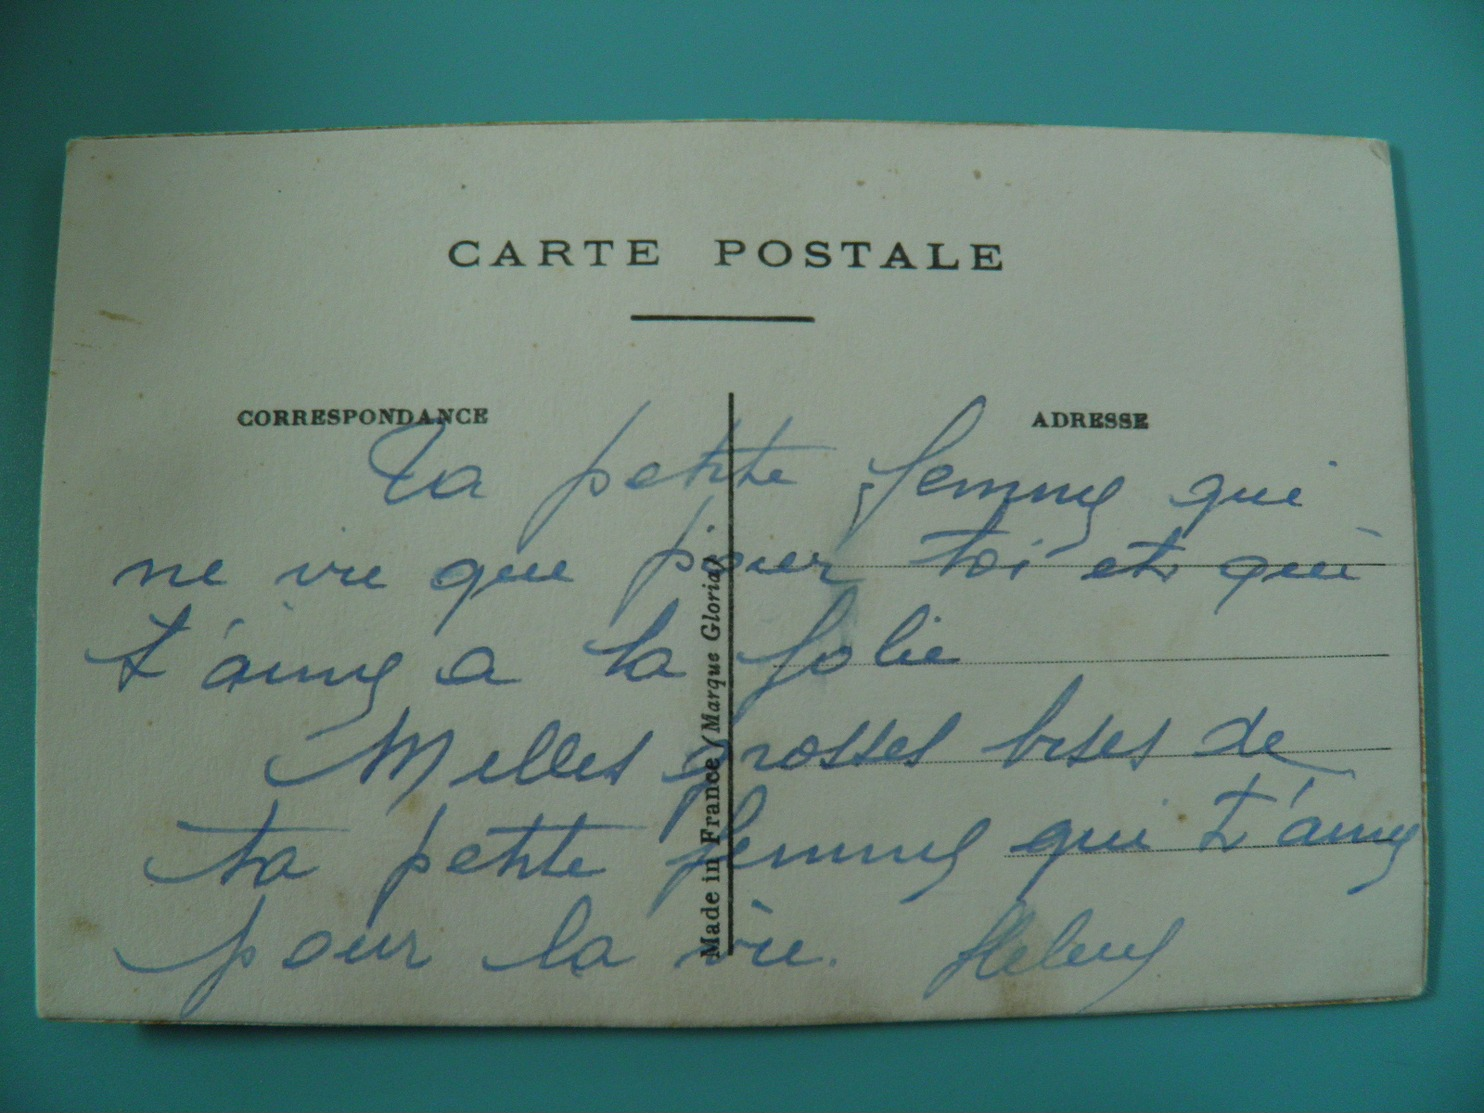 CARTE POSTALE
CORRESPONDANCE
ADRESSE
Ta petite femme qui
ne vie que pour toi et qui
t'aime a la folie
Milles grosses bises de
ta petite femme qui t'aime
pour la vie. Helene
Made in France (Marque Gloria)